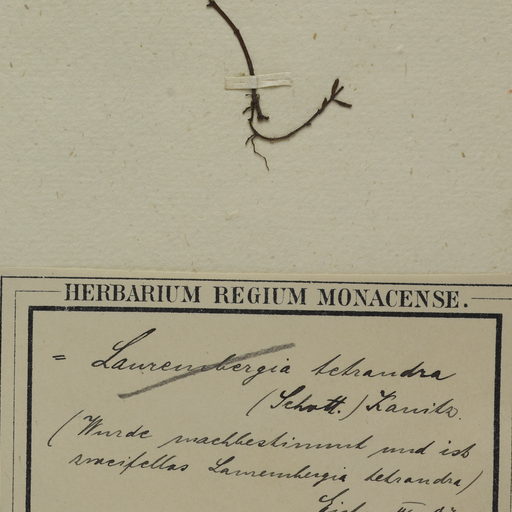 HERBARIUM REGIUM MONACENSE.
= Laurembergia tetrandra
(Schott.) Kanitz.
(Wurde nachbestimmt und ist
zweifellos Laurembergia tetrandra)